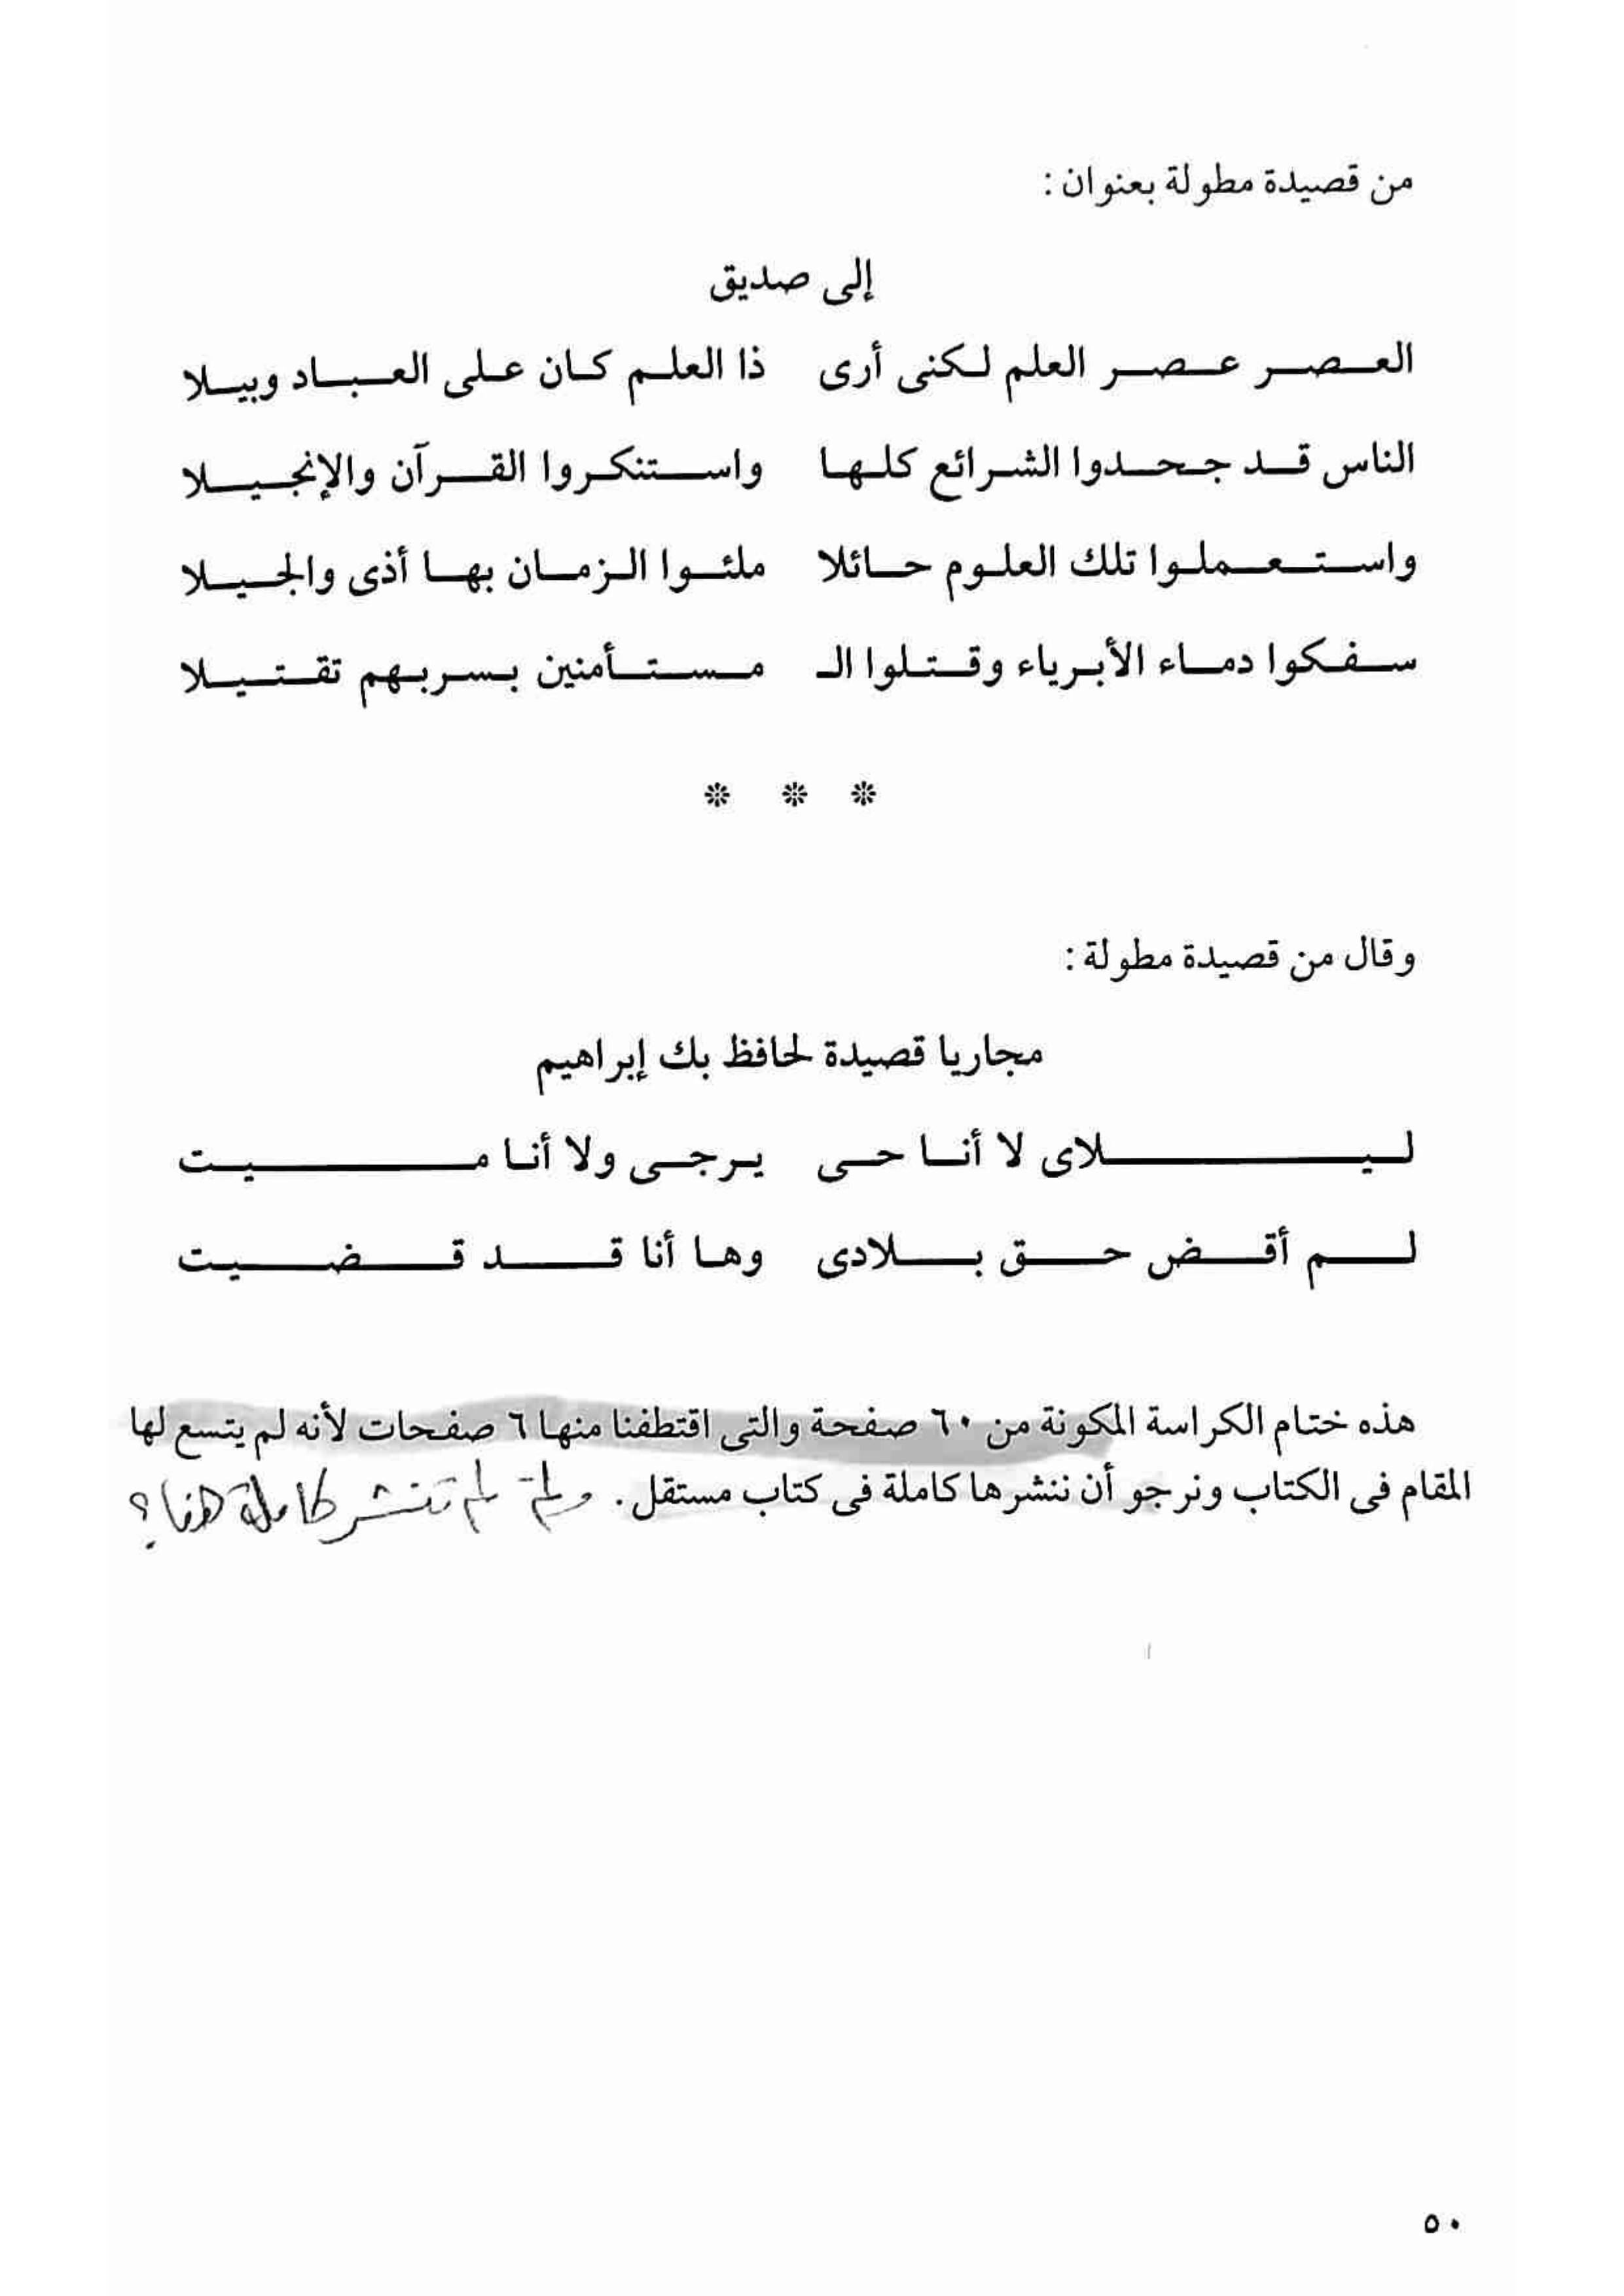 من قصيدة مطولة بعنوان :
إلى صديق
العصر عصر العلم لكنى أرى ذا العلم كان على العباد وبيلا
الناس قد جحدوا الشرائع كلها واستنكروا القرآن والإنجيلا
واستعملوا تلك العلوم حائلا ملئوا الزمان بها أذى والجيلا
سفكوا دماء الأبرياء وقتلوا الـ مستأمنين بسربهم تقتيلا
* * *
وقال من قصيدة مطولة :
مجاريا قصيدة لحافظ بك إبراهيم
ليلاى لا أنا حى يرجى ولا أنا ميت
لم أقض حق بلادى وها أنا قد قضيت
هذه ختام الكراسة المكونة من ٦٠ صفحة والتى اقتطفنا منها ٦ صفحات لأنه لم يتسع لها
المقام فى الكتاب ونرجو أن ننشرها كاملة فى كتاب مستقل . ولمَ لم تنشر كاملة هنا ؟
٥٠